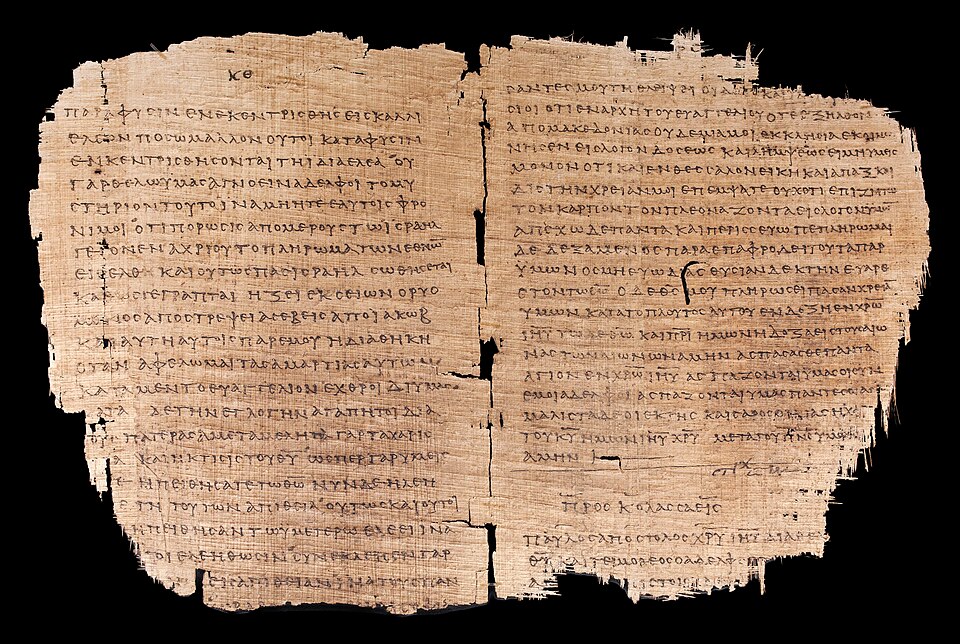 ΚΘ
ΠΑΡΑ ΦΥϹΙΝ ΕΝΕΚΕΝΤΡΙϹΘΗϹ ΕΙϹ ΚΑΛΛΙ
ΕΛΑΙΟΝ ΠΟϹΩ ΜΑΛΛΟΝ ΟΥΤΟΙ ΚΑΤΑ ΦΥϹΙΝ
ΕΝΚΕΝΤΡΙϹΘΗϹΟΝΤΑΙ ΤΗΙ ΙΔΙΑ ΕΛΕΑ ΟΥ
ΓΑΡ ΘΕΛΩ ΥΜΑϹ ΑΓΝΟΕΙΝ ΑΔΕΛΦΟΙ ΤΟ ΜΥ
ϹΤΗΡΙΟΝ ΤΟΥΤΟ ΙΝΑ ΜΗ ΗΤΕ ΕΑΥΤΟΙϹ ΦΡΟ
ΝΙΜΟΙ ΟΤΙ ΠΩΡΩϹΙϹ ΑΠΟ ΜΕΡΟΥϹ ΤΩ ΙϹΡΑΗΛ
ΓΕΓΟΝΕΝ ΑΧΡΙ ΟΥ ΤΟ ΠΛΗΡΩΜΑ ΤΩΝ ΕΘΝΩΝ
ΕΙϹΕΛΘΗ ΚΑΙ ΟΥΤΩϹ ΠΑϹ ΙϹΡΑΗΛ ϹΩΘΗϹΕΤΑΙ
ΚΑΘΩϹ ΓΕΓΡΑΠΤΑΙ ΗΞΕΙ ΕΚ ϹΕΙΩΝ Ο ΡΥΟ
ΜΕΝΟϹ ΑΠΟϹΤΡΕΨΕΙ ΑϹΕΒΕΙΑϹ ΑΠΟ ΙΑΚΩΒ
ΚΑΙ ΑΥΤΗ ΑΥΤΟΙϹ ΠΑΡ ΕΜΟΥ Η ΔΙΑΘΗΚΗ
ΟΤΑΝ ΑΦΕΛΩΜΑΙ ΤΑϹ ΑΜΑΡΤΙΑϹ ΑΥΤΩΝ
ΚΑΤΑ ΜΕΝ ΤΟ ΕΥΑΓΓΕΛΙΟΝ ΕΧΘΡΟΙ ΔΙ ΥΜΑϹ
ΔΕ ΤΗΝ ΕΓΛΟΓΗΝ ΑΓΑΠΗΤΟΙ ΔΙΑ
ΤΟΥϹ ΠΑΤΕΡΑϹ ΑΜΕΤΑΜΕΛΗΤΑ ΓΑΡ ΤΑ ΧΑΡΙϹ
ΚΑΙ Η ΚΤΙϹΙϹ ΤΟΥ ΘΥ ΩϹΠΕΡ ΓΑΡ ΥΜΕΙϹ
ΗΠΕΙΘΗϹΑΤΕ ΤΩ ΘΩ ΝΥΝ ΔΕ ΗΛΕΗ
ΤΗ ΤΟΥΤΩΝ ΑΠΙΘΕΙΑ ΟΥΤΩϹ ΚΑΙ ΟΥΤΟΙ
ΗΠΕΙΘΗϹΑΝ ΤΩ ΥΜΕΤΕΡΩ ΕΛΕΕΙ ΙΝΑ
ΕΛΕΗΘΩϹΙΝ ϹΥΝΕΚΛΕΙϹΕΝ ΓΑΡ
ΕΙϹ ΑΠΙΘΕΙΑΝ ΙΝΑ ΤΟΥϹ ΠΑΝ
ϹΑΝΤΕϹ ΜΟΥ ΤΗ ΘΛΙΨΕΙ ΟΙΔΑΤΕ ΔΕ ΚΑΙ
ϹΙΟΙ ΟΤΙ ΕΝ ΑΡΧΗ ΤΟΥ ΕΥΑΓΓΕΛΙΟΥ ΟΤΕ ΕΞΗΛΘΟΝ
ΑΠΟ ΜΑΚΕΔΟΝΙΑϹ ΟΥΔΕΜΙΑ ΜΟΙ ΕΚΚΛΗϹΙΑ ΕΚΟΙΝΩ
ΝΗϹΕΝ ΕΙϹ ΛΟΓΟΝ ΔΟϹΕΩϹ ΚΑΙ ΛΗΜΨΕΩϹ ΕΙ ΜΗ ΥΜΕΙϹ
ΜΟΝΟΙ ΟΤΙ ΚΑΙ ΕΝ ΘΕϹϹΑΛΟΝΕΙΚΗ ΚΑΙ ΑΠΑΞ ΚΑΙ
ΔΙϹ ΤΗΝ ΧΡΕΙΑΝ ΜΟΙ ΕΠΕΜΨΑΤΕ ΟΥΧ ΟΤΙ ΕΠΙΖΗΤΩ
ΤΟΝ ΚΑΡΠΟΝ ΤΟΝ ΠΛΕΟΝΑΖΟΝΤΑ ΕΙϹ ΛΟΓΟΝ ΥΜΩΝ
ΑΠΕΧΩ ΔΕ ΠΑΝΤΑ ΚΑΙ ΠΕΡΙϹϹΕΥΩ ΠΕΠΛΗΡΩΜΑΙ
ΔΕ ΔΕΞΑΜΕΝΟϹ ΠΑΡΑ ΕΠΑΦΡΟΔΕΙΤΟΥ ΤΑ ΠΑΡ
ΥΜΩΝ ΟϹΜΗϹ ΕΥΩΔΙΑϹ ΘΥϹΙΑΝ ΔΕΚΤΗΝ ΕΥΑΡΕ
ϹΤΟΝ ΤΩ ΘΩ Ο ΔΕ ΘϹ ΜΟΥ ΠΛΗΡΩϹΕΙ ΠΑϹΑΝ ΧΡΕΙΑ
ΥΜΩΝ ΚΑΤΑ ΤΟ ΠΛΟΥΤΟϹ ΑΥΤΟΥ ΕΝ ΔΟΞΗ ΕΝ ΧΡΩ
ΙΗΥ ΤΩ ΔΕ ΘΩ ΚΑΙ ΠΡΙ ΗΜΩΝ Η ΔΟΞΑ ΕΙϹ ΤΟΥϹ ΑΙΩ
ΝΑϹ ΤΩΝ ΑΙΩΝΩΝ ΑΜΗΝ ΑϹΠΑϹΑϹΘΕ ΠΑΝΤΑ
ΑΓΙΟΝ ΕΝ ΧΡΩ ΙΗΥ ΑϹΠΑΖΟΝΤΑΙ ΥΜΑϹ ΟΙ ϹΥΝ
ΕΜΟΙ ΑΔΕΛΦΟΙ ΑϹΠΑΖΟΝΤΑΙ ΥΜΑϹ ΠΑΝΤΕϹ ΟΙ ΑΓΙ
ΜΑΛΙϹΤΑ ΔΕ ΟΙ ΕΚ ΤΗϹ ΚΑΙϹΑΡΟϹ ΟΙΚΙΑϹ Η ΧΑ
ΤΟΥ ΚΥ ΗΜΩΝ ΙΗΥ ΧΡΥ ΜΕΤΑ ΤΟΥ ΠΝϹ ΥΜΩΝ
ΑΜΗΝ
ϹΤΙΧ
ΠΡΟϹ ΚΟΛΑϹϹΑΕΙϹ
ΠΑΥΛΟϹ ΑΠΟϹΤΟΛΟϹ ΧΡΥ ΙΗΥ ΔΙΑ ΘΕΛ
ΘΥ ΚΑΙ ΤΕΙΜΟΘΕΟϹ Ο ΑΔΕΛΦΟϹ